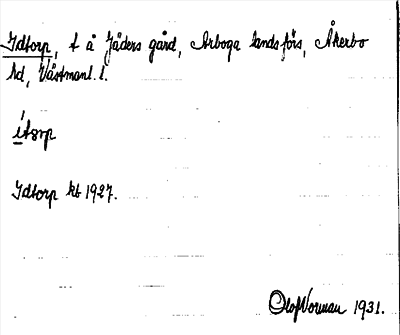 Idtorp, t å Jäders gård, Arboga landsförs, Åkerbo
hd, Västmanl. l.
ít&rp
Idtorp kb 1927.
Olof Norman 1931.